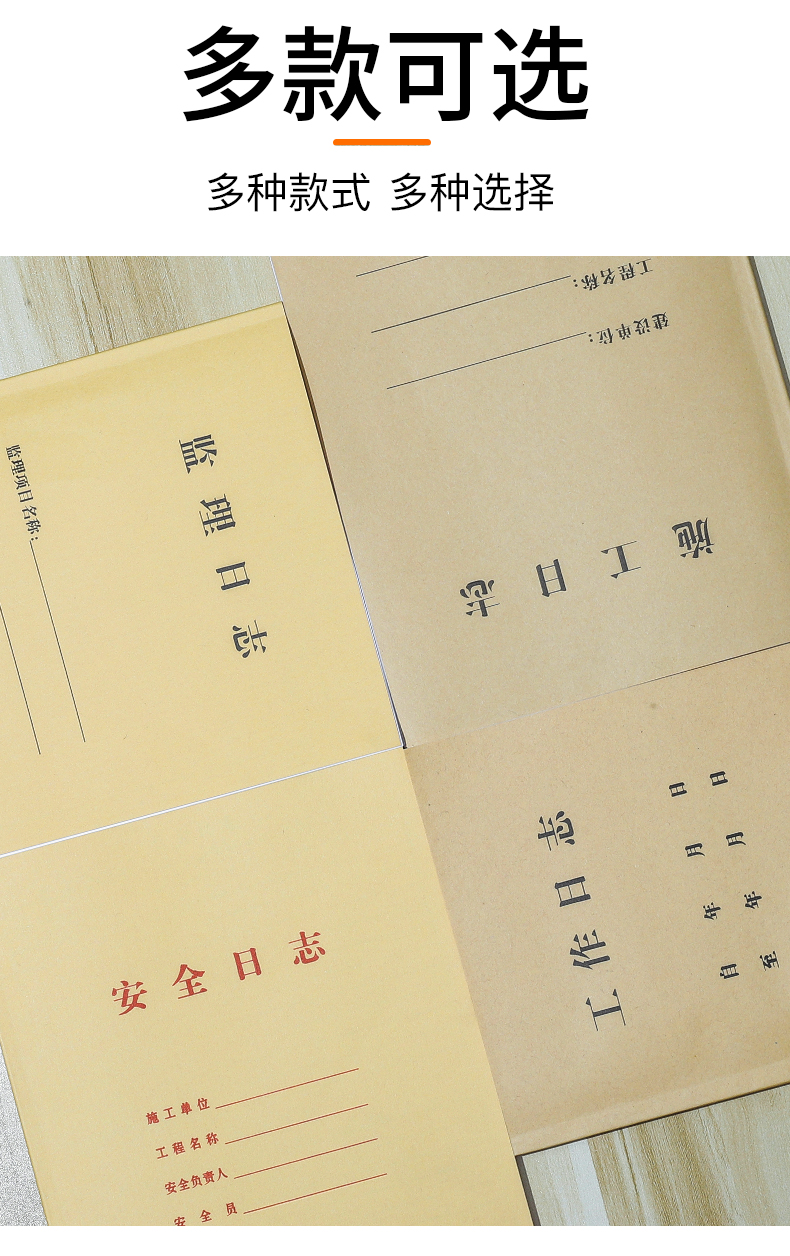 多款可选
多种款式 多种选择
监理日志
监理项目名称:
工程名称:
建设单位:
施工日志
安全日志
施工单位
工程名称
安全负责人
安全员
工作日志
自 年 月 日
至 年 月 日